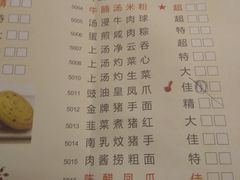 5004 牛腩汤米粉 超
5005 上汤浸牛肉球 超
5006 上汤焗咸肉粽 特
5007 上汤净云吞 特
5008 上汤灼菜心 大
5010 上汤灼生菜 大
5011 豉油皇凤爪 佳
5012 金牌猪手 精
5013 韭菜煮猪红 大
5014 南乳炆猪手 特
5015 肉酱捞粗面 佳
陈醋凤爪 超